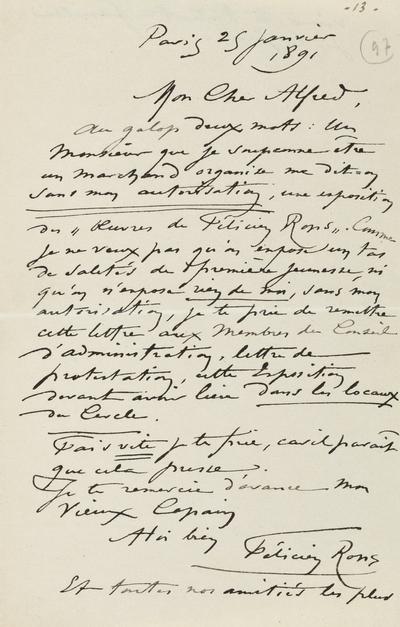 - 13 -
97
Paris 25 Janvier
1891
Mon Cher Alfred,
Au galop deux mots : Un
Monsieur que je soupçonne être
un marchand organise me dit-on,
sans mon autorisation, une exposition
des „ Œuvres de Félicien Rops ". Comme
je ne veux pas qu'on expose un tas
de saletés de première jeunesse, ni
qu'on n'expose rien de moi, sans mon
autorisation, je te prie de remettre
cette lettre aux Membres du Conseil
d'administration, lettre de
protestation, cette Exposition
devant avoir lieu dans les locaux
du Cercle.
Fais vite je te prie, car il paraît
que cela presse.
Je te remercie d'avance mon
Vieux Copain
A toi bien
Félicien Rops
Et toutes nos amitiés les plus